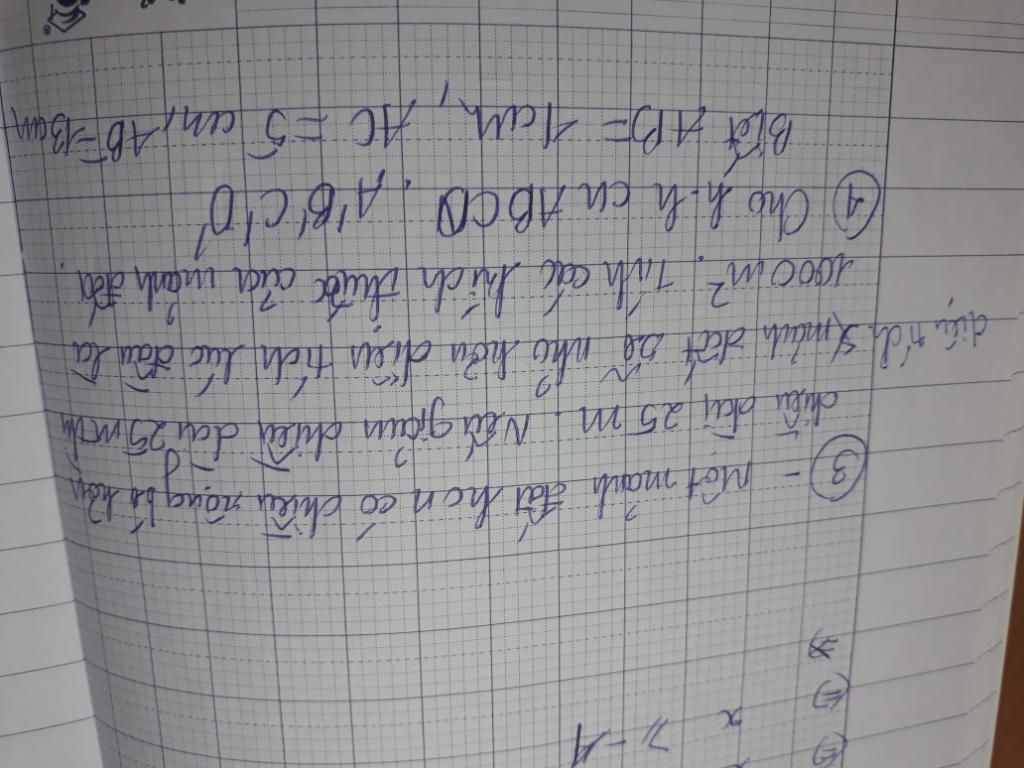 (=) x ≥ -1
(=)
=>
③ - Một mảnh đất hcn có chiều rộng bé hơn
chiều dài 25 m. Nếu giảm chiều dài 25 m thì
diện tích mảnh đất sẽ nhỏ hơn diện tích lúc đầu là
1000 m². Tính các kích thước của mảnh đất.
④ Cho h.h cn ABCD. A'B'C'D'
Biết AB = 4cm, AC = 5 cm, = 13cm